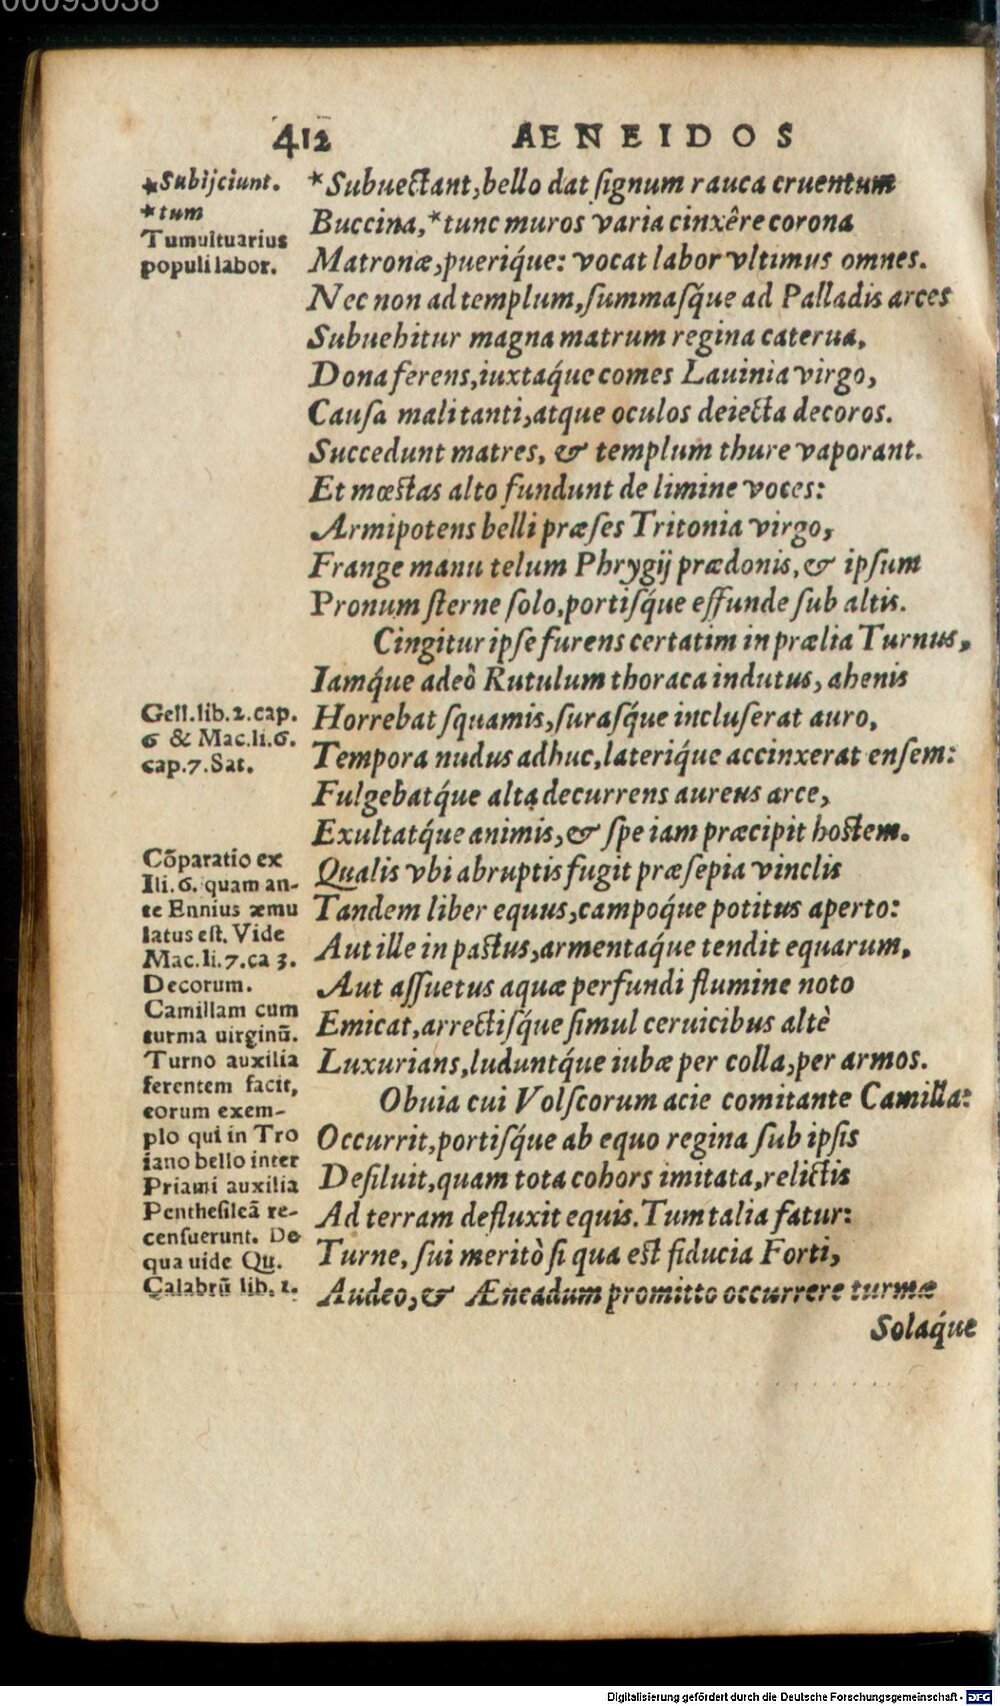 00093038
412 AENEIDOS
*Subijciunt.
*tum
Tumultuarius
populi labor.
*Subuectant, bello dat ſignum rauca cruentum
Buccina, *tunc muros varia cinxêre corona
Matronæ, pueriq́ue: vocat labor vltimus omnes.
Nec non ad templum, ſummaſq́ue ad Palladis arces
Subuehitur magna matrum regina caterua,
Dona ferens, iuxtaq́ue comes Lauinia virgo,
Cauſa mali tanti, atque oculos deiecta decoros.
Succedunt matres, & templum thure vaporant.
Et mœstas alto fundunt de limine voces:
Armipotens belli præſes Tritonia virgo,
Frange manu telum Phrygij prædonis, & ipſum
Pronum ſterne ſolo, portiſq́ue effunde ſub altis.
Cingitur ipſe furens certatim in prælia Turnus,
Iamq́ue adeò Rutulum thoraca indutus, ahenis
Gell. lib. 2. cap.
6 & Mac. li. 6.
cap. 7. Sat.
Horrebat ſquamis, ſuraſq́ue incluſerat auro,
Tempora nudus adhuc, lateriq́ue accinxerat enſem:
Fulgebatq́ue alta decurrens aureus arce,
Exultatq́ue animis, & ſpe iam præcipit hostem.
Cõparatio ex
Ili. 6. quam an-
te Ennius æmu
latus eſt. Vide
Mac. li. 7. ca 3.
Decorum.
Camillam cum
turma uirginũ.
Turno auxilia
ferentem facit,
eorum exem-
plo qui in Tro
iano bello inter
Priami auxilia
Pentheſileã re-
cenſuerunt. De
qua uide Qu.
Calabrũ lib. 1.
Qualis vbi abruptis fugit præſepia vinclis
Tandem liber equus, campoq́ue potitus aperto:
Aut ille in pastus, armentaq́ue tendit equarum,
Aut aſſuetus aquæ perfundi flumine noto
Emicat, arrectiſq́ue ſimul ceruicibus altè
Luxurians, luduntq́ue iubæ per colla, per armos.
Obuia cui Volſcorum acie comitante Camilla:
Occurrit, portiſq́ue ab equo regina ſub ipſis
Deſiluit, quam tota cohors imitata, relictis
Ad terram defluxit equis. Tum talia fatur:
Turne, ſui meritò ſi qua est fiducia Forti,
Audeo, & Æneadum promitto occurrere turmæ
Solaq́ue
Digitalisierung gefördert durch die Deutsche Forschungsgemeinschaft - DFG